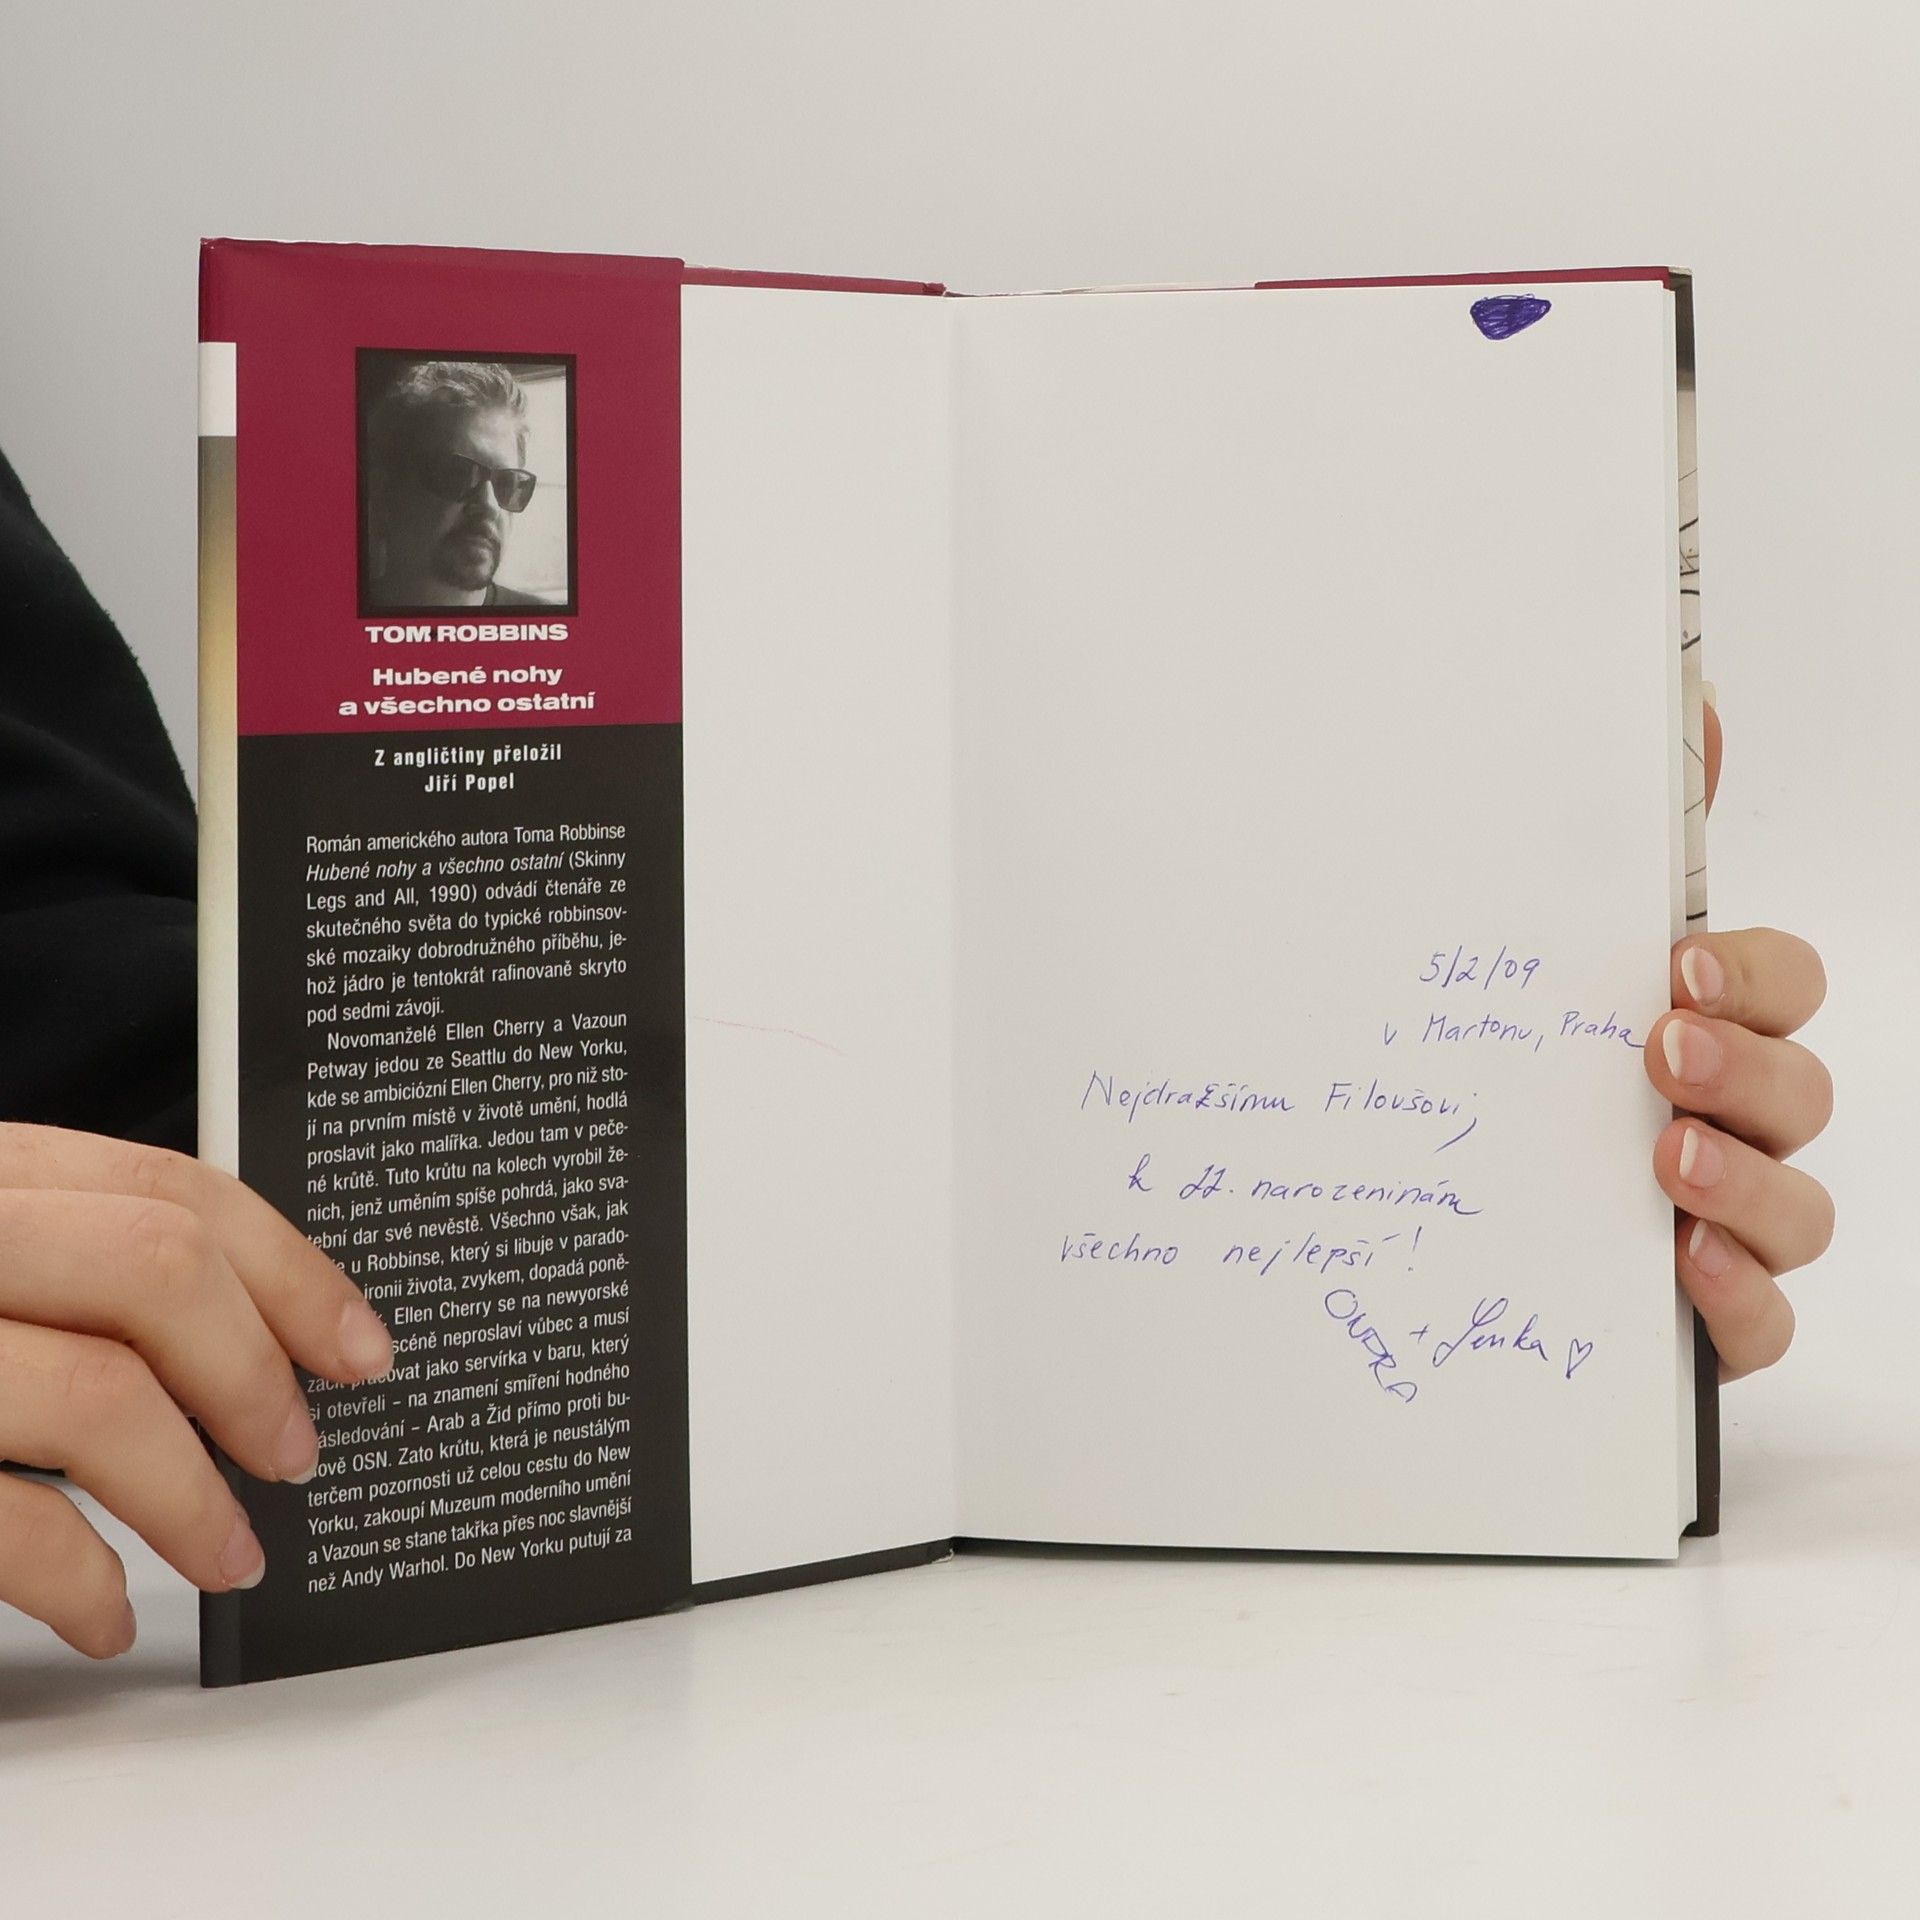 TOM ROBBINS
Hubené nohy
a všechno ostatní
Z angličtiny přeložil
Jiří Popel
Román amerického autora Toma Robbinse
Hubené nohy a všechno ostatní (Skinny
Legs and All, 1990) odvádí čtenáře ze
skutečného světa do typické robbinsov-
ské mozaiky dobrodružného příběhu, je-
hož jádro je tentokrát rafinovaně skryto
pod sedmi závoji.
Novomanželé Ellen Cherry a Vazoun
Petway jedou ze Seattlu do New Yorku,
kde se ambiciózní Ellen Cherry, pro niž sto-
jí na prvním místě v životě umění, hodlá
proslavit jako malířka. Jedou tam v peče-
né krůtě. Tuto krůtu na kolech vyrobil že-
nich, jenž uměním spíše pohrdá, jako sva-
tební dar své nevěstě. Všechno však, jak
u Robbinse, který si libuje v parado-
ironii života, zvykem, dopadá poně-
Ellen Cherry se na newyorské
scéně neproslaví vůbec a musí
začít pracovat jako servírka v baru, který
si otevřeli – na znamení smíření hodného
následování – Arab a Žid přímo proti bu-
dově OSN. Zato krůtu, která je neustálým
terčem pozornosti už celou cestu do New
Yorku, zakoupí Muzeum moderního umění
a Vazoun se stane takřka přes noc slavnější
než Andy Warhol. Do New Yorku putují za
5/2/09
v Martonu, Praha
Nejdražšímu Filoušovi,
k 22. narozeninám
všechno nejlepší!
ONDRA + Lenka